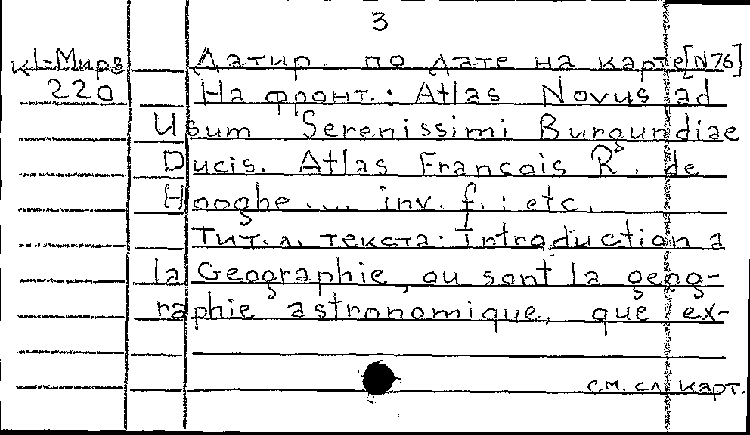 3
к1-Мира Датир. по дате на карте[N76]
220 На фронт.: Atlas Novus ad
Usum Serenissimi Burgundiae
Ducis. Atlas François R. de
Hooghe.... inv. f.: etc.
Тит.л. текста: Introduction a
la Geographie, ou sont la geog-
raphie astronomique, que ex-
см. сл. карт.